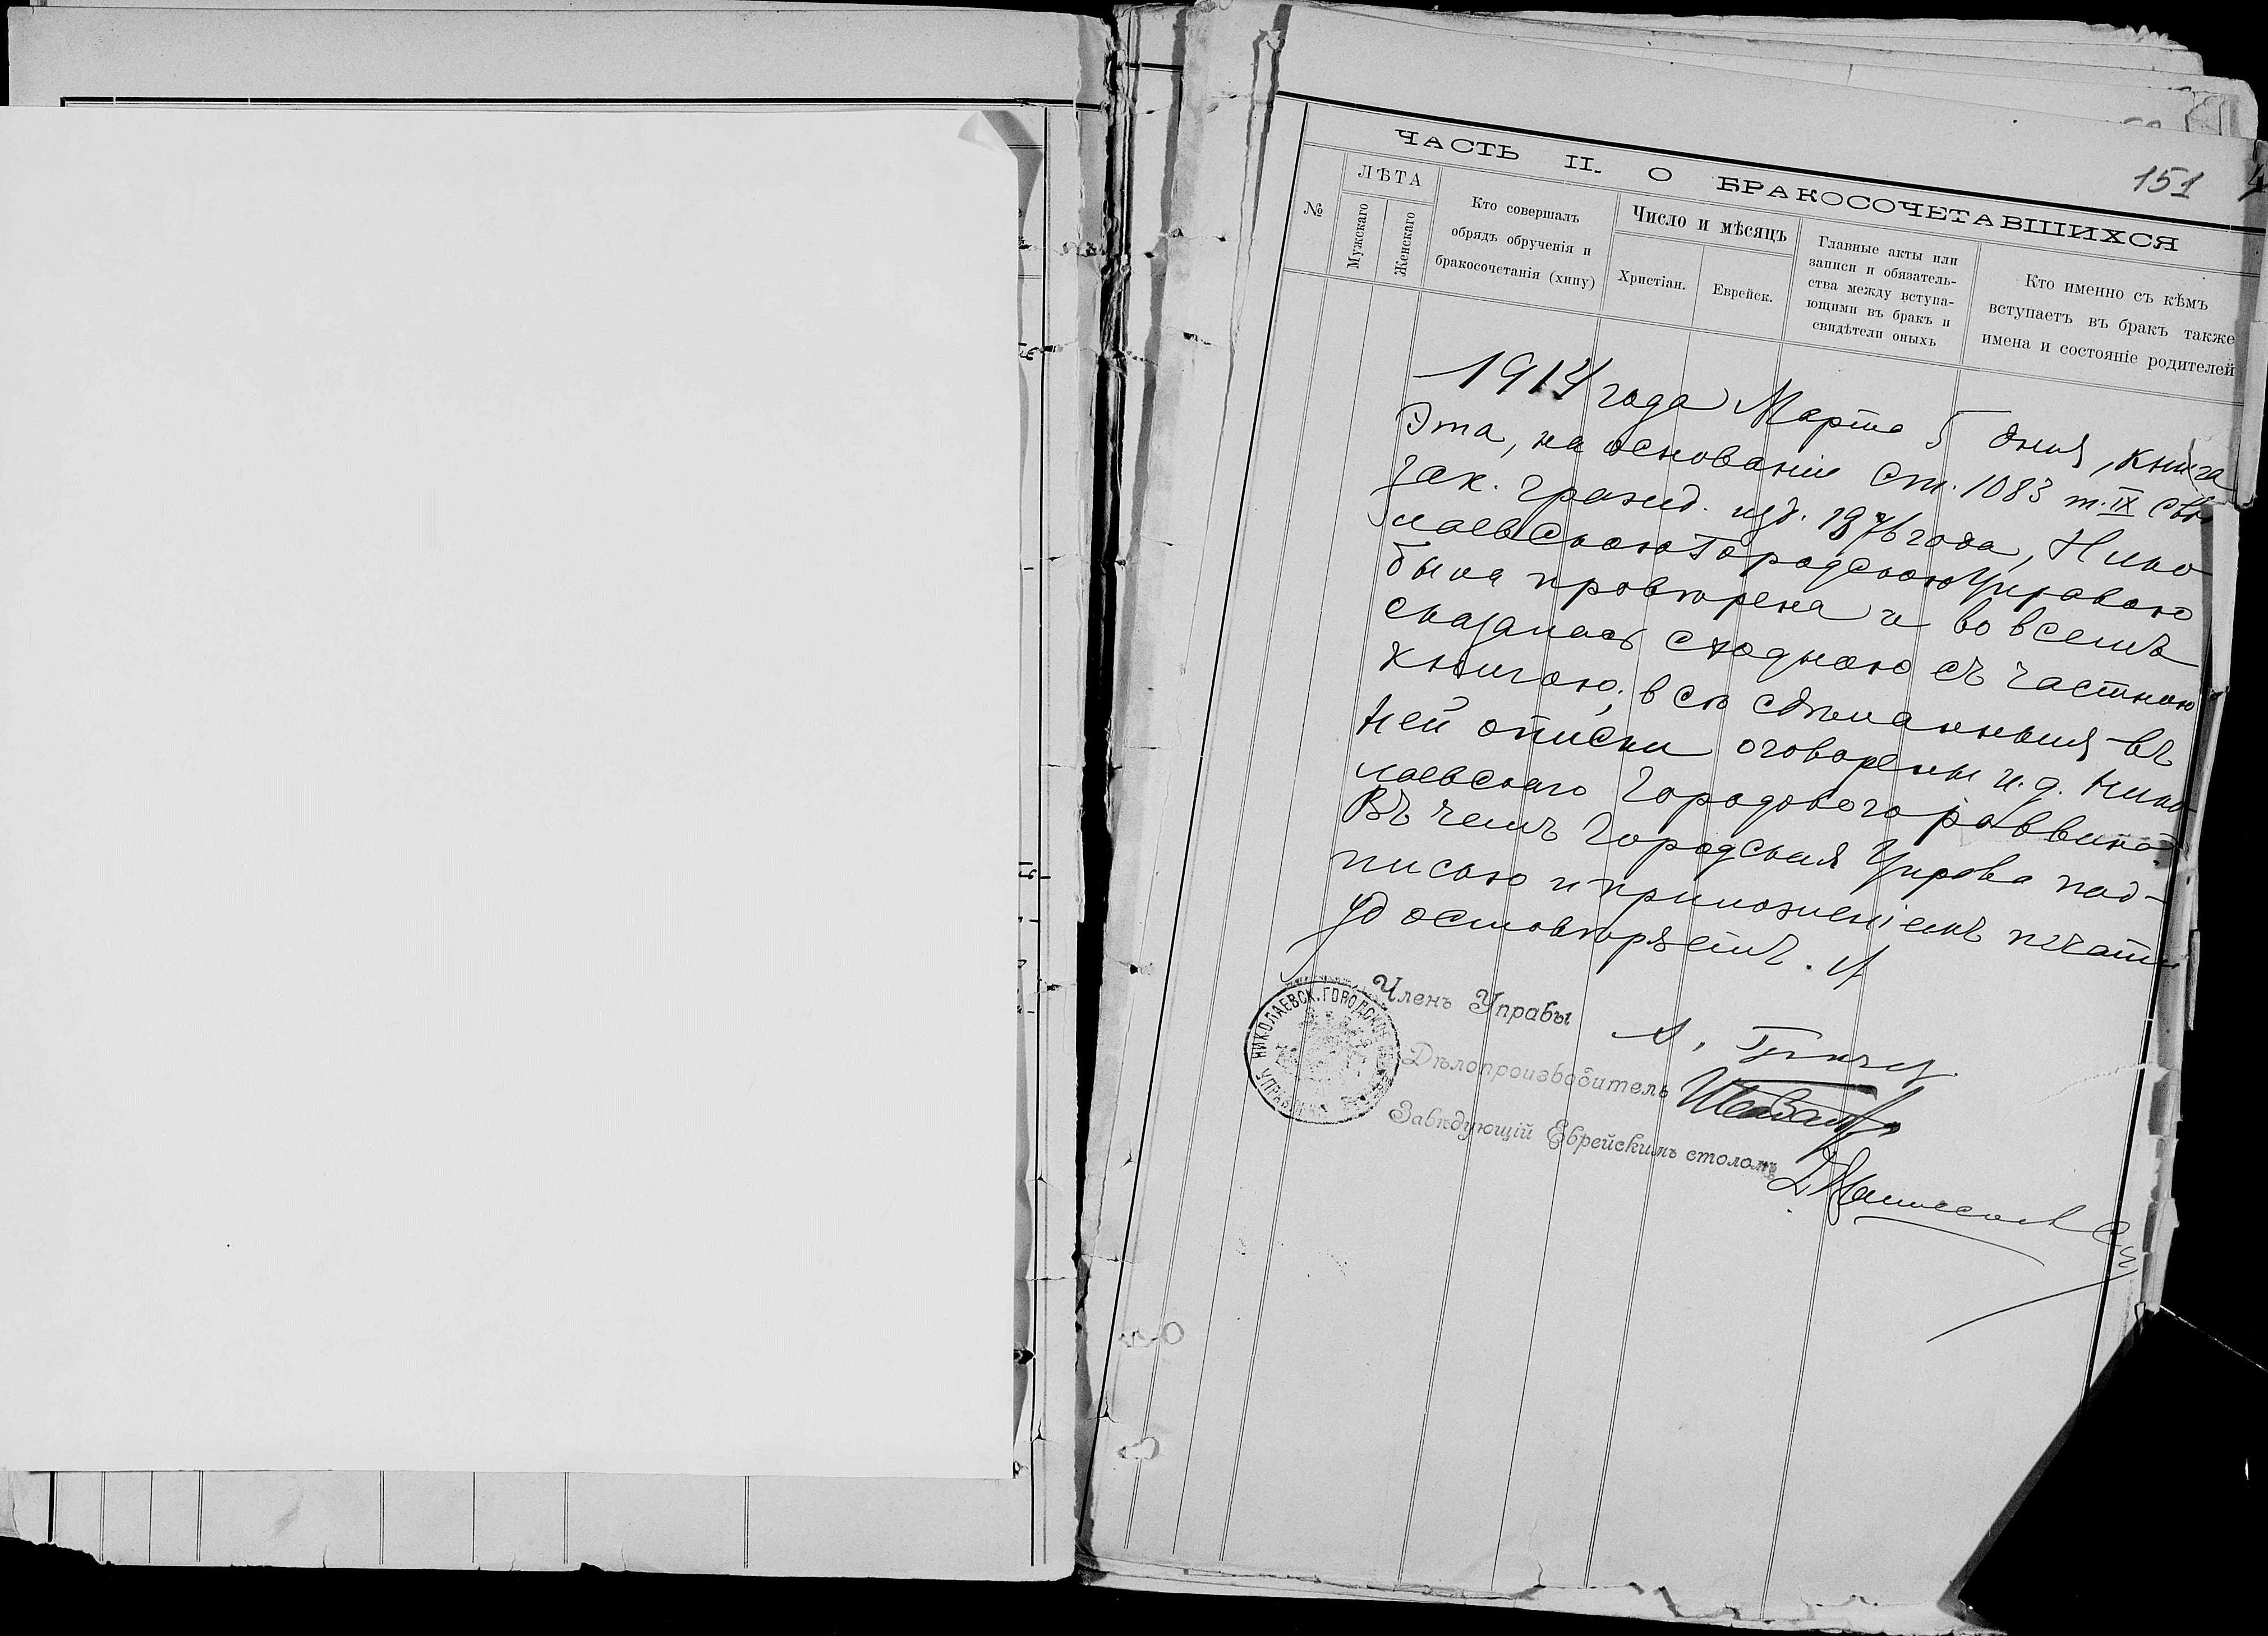 151
ЧАСТЬ II. О БРАКОСОЧЕТАВШИХСЯ
№
ЛѢТА
Мужскаго
Женскаго
Кто совершалъ
обрядъ обрученія и
бракосочетанія (хипу)
Число и мѣсяцъ
Христіан.
Еврейск.
Главные акты или
записи и обязатель-
ства между вступа-
ющими въ бракъ и
свидѣтели оныхъ
Кто именно съ кѣмъ
вступаетъ въ бракъ также
имена и состояніе родителей
1914 года Марта 5 дня, книга
Эта, на основаніи ст. 1083 т. IX Св.
Зак. гражд. изд. 1876 года, Нико
лаевскою Городскою Управою
была провѣрена и во всемъ
оказалась сходною съ частною
книгою; всѣ сдѣланныя въ
ней описки оговорены и. д. Нико-
лаевскаго Городового раввина.
Въ чемъ Городская Управа под-
писью и приложеніемъ печати
удостовѣряетъ.
Членъ Управы
Дѣлопроизводитель
Завѣдующій Еврейскимъ столомъ
НИКОЛАЕВСК. ГОРОДСКОЕ
УПРАВЛЕНІЕ